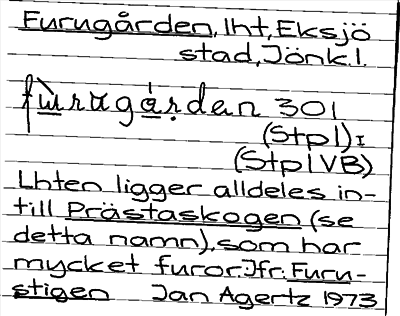 Furugården, lht, Eksjö
stad, Jönk.l.
fùrugárdan 301
(Stpl)I
(StplVB)
Lhten ligger alldeles in-
till Prästaskogen (se
detta namn), som har
mycket furor. Jfr. Furu-
stigen Jan Agertz 1973